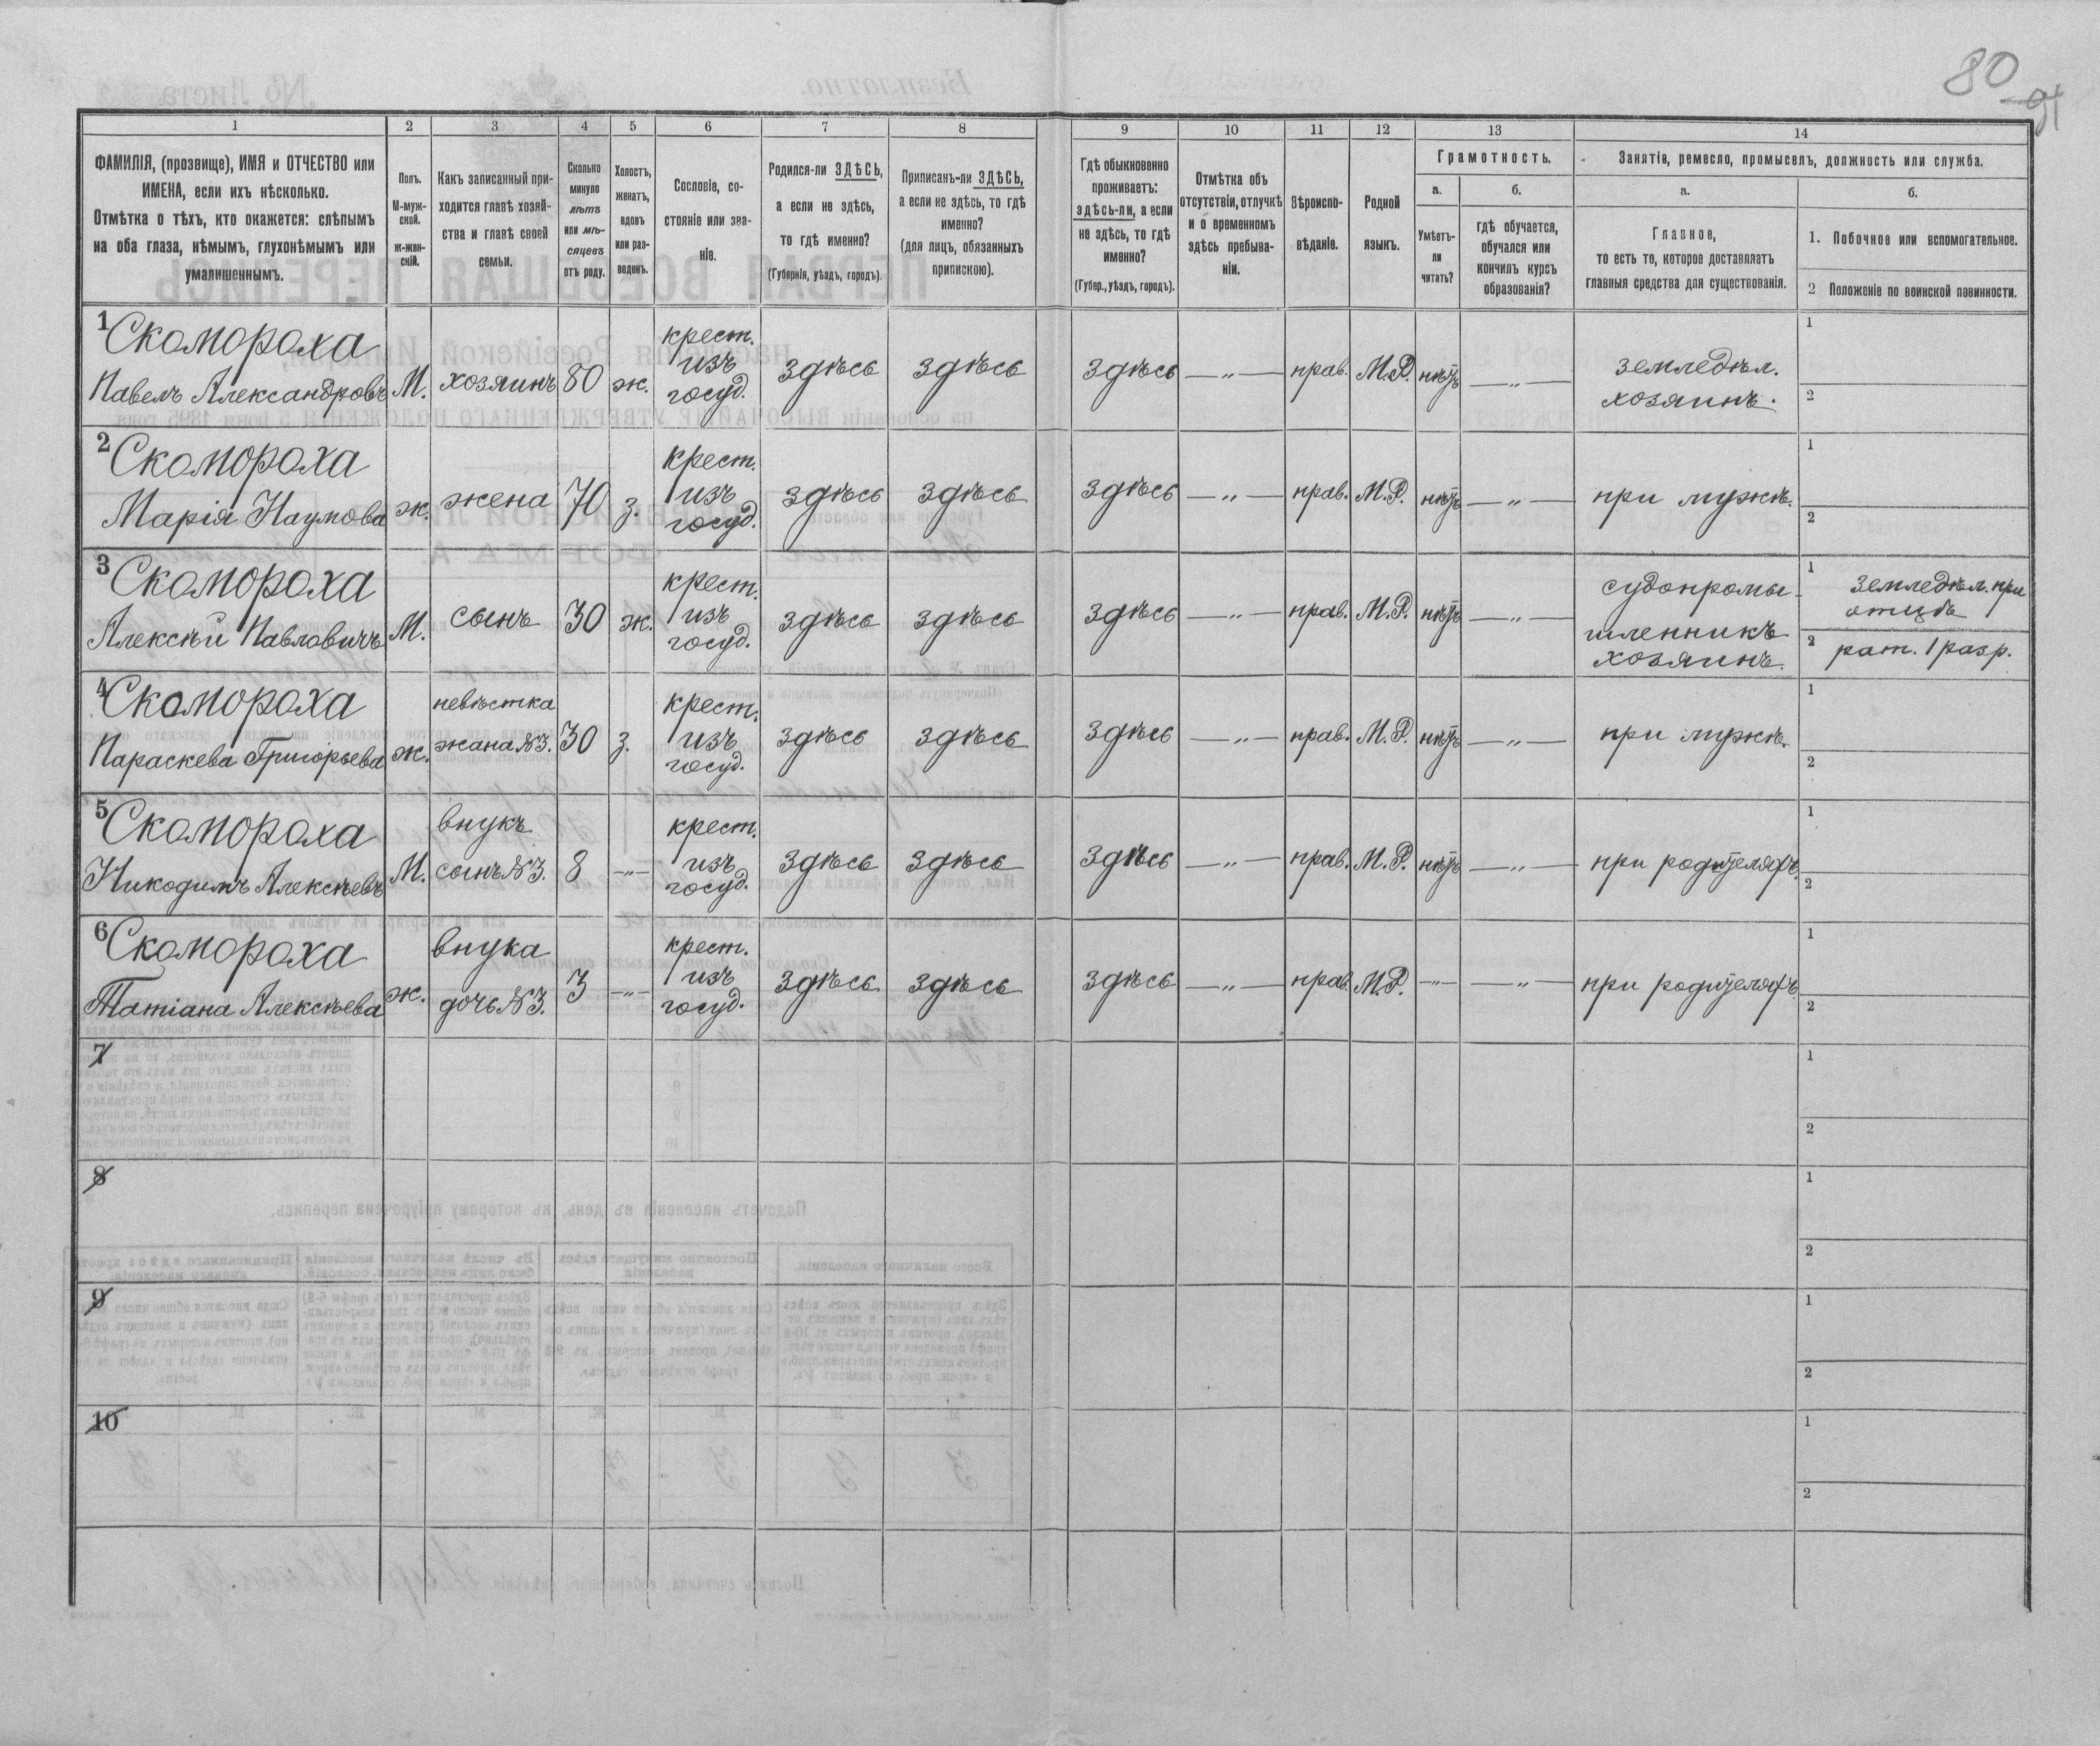 80
91
1 2 3 4 5 6 7 8 9 10 11 12 13 14
ФАМИЛІЯ, (прозвище), ИМЯ и ОТЧЕСТВО или
ИМЕНА, если ихъ нѣсколько.
Отмѣтка о тѣхъ, кто окажется: слѣпымъ
на оба глаза, нѣмымъ, глухонѣмымъ или
умалишеннымъ.
Полъ.
М-муж-
ской.
ж-жен-
скій.
Какъ записанный при-
ходится главѣ хозяй-
ства и главѣ своей
семьи.
Сколько
минуло
лѣтъ
или мѣ-
сяцевъ
отъ роду.
Холостъ,
женатъ,
вдовъ
или раз-
веденъ.
Сословіе, со-
стояніе или зва-
ніе.
Родился-ли ЗДѢСЬ,
а если не здѣсь,
то гдѣ именно?
(Губернія, уѣздъ, городъ).
Приписанъ-ли ЗДѢСЬ,
а если не здѣсь, то гдѣ
именно?
(для лицъ, обязанныхъ
припискою).
Гдѣ обыкновенно
проживаетъ:
здѣсь-ли, а если
не здѣсь, то гдѣ
именно?
(Губер., уѣздъ, городъ).
Отмѣтка объ
отсутствіи, отлучкѣ
и о временномъ
здѣсь пребыва-
ніи.
Вѣроиспо-
вѣданіе.
Родной
языкъ.
Грамотность.
а.
Умѣетъ-
ли
читать?
б.
гдѣ обучается,
обучался или
кончилъ курсъ
образованія?
Занятіе, ремесло, промыселъ, должность или служба.
а.
Главное,
то есть то, которое доставляетъ
главныя средства для существованія.
б.
1. Побочное или вспомогательное.
2 Положеніе по воинской повинности.
1 Скомороха
Павелъ Александровъ М. хозяинъ 80 ж. крест. изъ госуд. здѣсь здѣсь здѣсь —„— прав. М.Р. нѣтъ —„— земледѣл. хозяинъ. 1 2
2 Скомороха
Марія Наумова ж. жена 70 з. крест. изъ госуд. здѣсь здѣсь здѣсь —„— прав. М.Р. нѣтъ —„— при мужѣ. 1 2
3 Скомороха
Алексѣй Павловичъ М. сынъ 30 ж. крест. изъ госуд. здѣсь здѣсь здѣсь —„— прав. М.Р. нѣтъ —„— судопромы-
шленникъ
хозяинъ. 1 земледѣл. при
отцѣ
2 рат. 1 разр.
4 Скомороха
Параскева Григорьева ж. невѣстка жана №3. 30 з. крест. изъ госуд. здѣсь здѣсь здѣсь —„— прав. М.Р. нѣтъ —„— при мужѣ. 1 2
5 Скомороха
Никодимъ Алексѣевъ М. внукъ сынъ №3. 8 —„— крест. изъ госуд. здѣсь здѣсь здѣсь —„— прав. М.Р. нѣтъ —„— при родителяхъ. 1 2
6 Скомороха
Татіана Алексѣева ж. внука дочь №3. 3 —„— крест. изъ госуд. здѣсь здѣсь здѣсь —„— прав. М.Р. —„— —„— при родителяхъ. 1 2
7 1 2
8 1 2
9 1 2
10 1 2